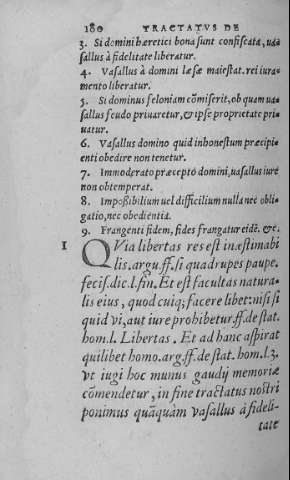 180 TRACTATVS DE
3. Si domini hæretici bona sunt confiscata, ua
sallus à fidelitate liberatur.
4. Vasallus à domini læsæ maiestat. rei iura-
mento liberatur.
5. Si dominus feloniam cõmiserit, ob quam ua-
sallus feudo priuaretur, & ipse proprietate pri-
uatur.
6. Vasallus domino quid inhonestum præcipi-
enti obedire non tenetur.
7. Immoderato præcepto domini, uasallus iure
non obtemperat.
8. Impoßibilium uel difficilium nulla nec obli-
gatio, nec obedientia.
9. Frangenti fidem, fides frangatur eidẽ. &c.
1 QVia libertas res est inæstimabi
lis. argu. ff. si quadrupes paupe.
fecis. dic. l. fin. Et est facultas natura-
lis eius, quod cuiq; facere libet: nisi si
quid vi, aut iure prohibetur. ff. de stat.
hom. l. Libertas. Et ad hanc aspirat
quilibet homo. arg. ff. de stat. hom. l. 3.
vt iugi hoc munus gaudij memoriæ
cõmendetur, in fine tractatus nostri
ponimus quãquàm vasallus à fideli-
tate